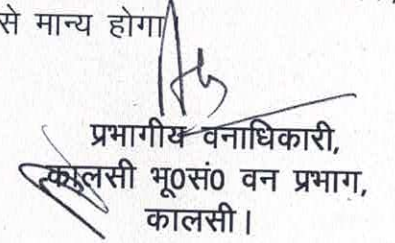 से मान्य होगा
प्रभागीय वनाधिकारी,
कालसी भू0सं0 वन प्रभाग,
कालसी।